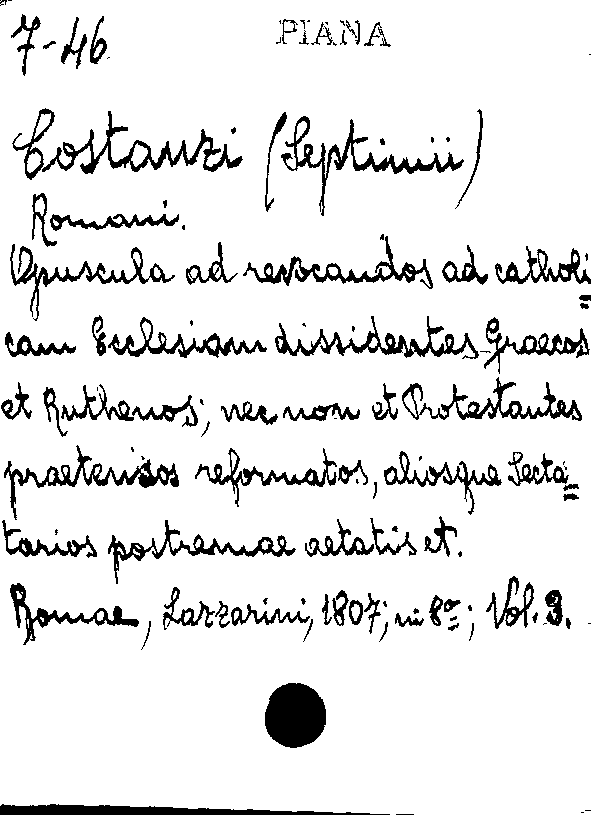 7-46 PIANA
Costanzi (Septimii)
Romani.
Opuscula ad revocandos ad catholi=
cam Ecclesiam dissidentes Graecos
et Ruthenos; nec non et Protestantes
praetensos reformatos, aliosque Secta=
tarios postremae aetatis et.
Romae, Lazzarini, 1807; in 8º; Vol. 3.